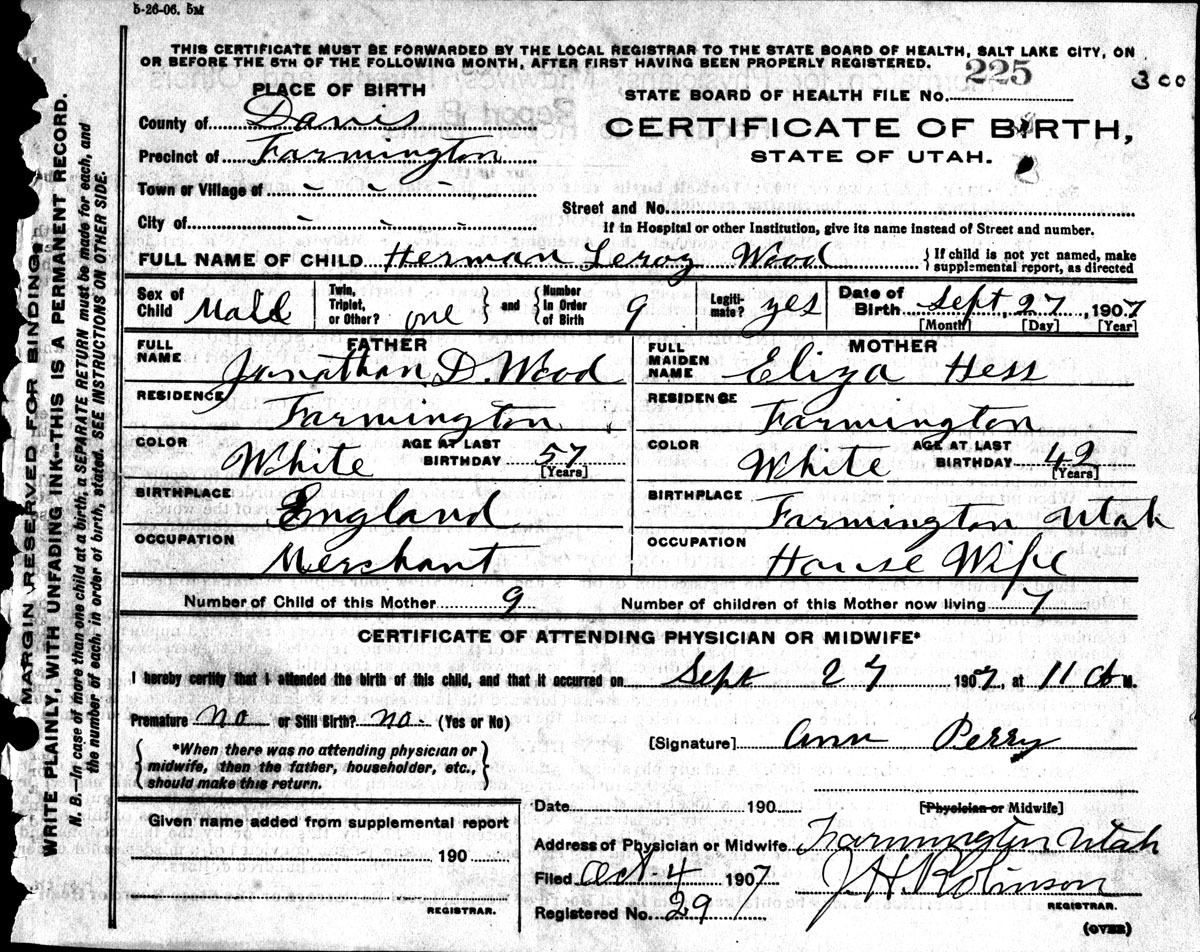 5-26-06. 5M
THIS CERTIFICATE MUST BE FORWARDED BY THE LOCAL REGISTRAR TO THE STATE BOARD OF HEALTH, SALT LAKE CITY, ON
OR BEFORE THE 5TH OF THE FOLLOWING MONTH, AFTER FIRST HAVING BEEN PROPERLY REGISTERED.
225
300
PLACE OF BIRTH
STATE BOARD OF HEALTH FILE NO.
County of Davis
CERTIFICATE OF BIRTH,
Precinct of Farmington
STATE OF UTAH.
Town or Village of - - - -
Street and No.
City of - - - -
If in Hospital or other Institution, give its name instead of Street and number.
FULL NAME OF CHILD Herman Leroy Wood { If child is not yet named, make supplemental report, as directed
Sex of Child Male Twin, Triplet, or Other? one } and { Number In Order of Birth 9 Legiti- mate? yes Date of Birth Sept, 27, 1907
[Month] [Day] [Year]
FATHER
MOTHER
FULL NAME Jonathan D. Wood
FULL MAIDEN NAME Eliza Hess
RESIDENCE Farmington
RESIDENCE Farmington
COLOR White AGE AT LAST BIRTHDAY 57 [Years]
COLOR White AGE AT LAST BIRTHDAY 42 [Years]
BIRTHPLACE England
BIRTHPLACE Farmington Utah
OCCUPATION Merchant
OCCUPATION House Wife
Number of Child of this Mother 9 Number of children of this Mother now living 7
CERTIFICATE OF ATTENDING PHYSICIAN OR MIDWIFE*
I hereby certify that I attended the birth of this child, and that it occurred on Sept 27 1907, at 11 a M.
Premature no or Still Birth? no. (Yes or No)
[Signature] Ann Perry
{ *When there was no attending physician or
midwife, then the father, householder, etc.,
should make this return. }
Date 190
[Physician or Midwife]
Given name added from supplemental report
Address of Physician or Midwife Farmington Utah
190
Filed Oct-4 1907 J. H. Robinson
REGISTRAR.
REGISTRAR.
Registered No. 29
(OVER)
MARGIN RESERVED FOR BINDING.
WRITE PLAINLY, WITH UNFADING INK--THIS IS A PERMANENT RECORD.
N. B.—In case of more than one child at a birth, a SEPARATE RETURN must be made for each, and
the number of each, in order of birth, stated. SEE INSTRUCTIONS ON OTHER SIDE.